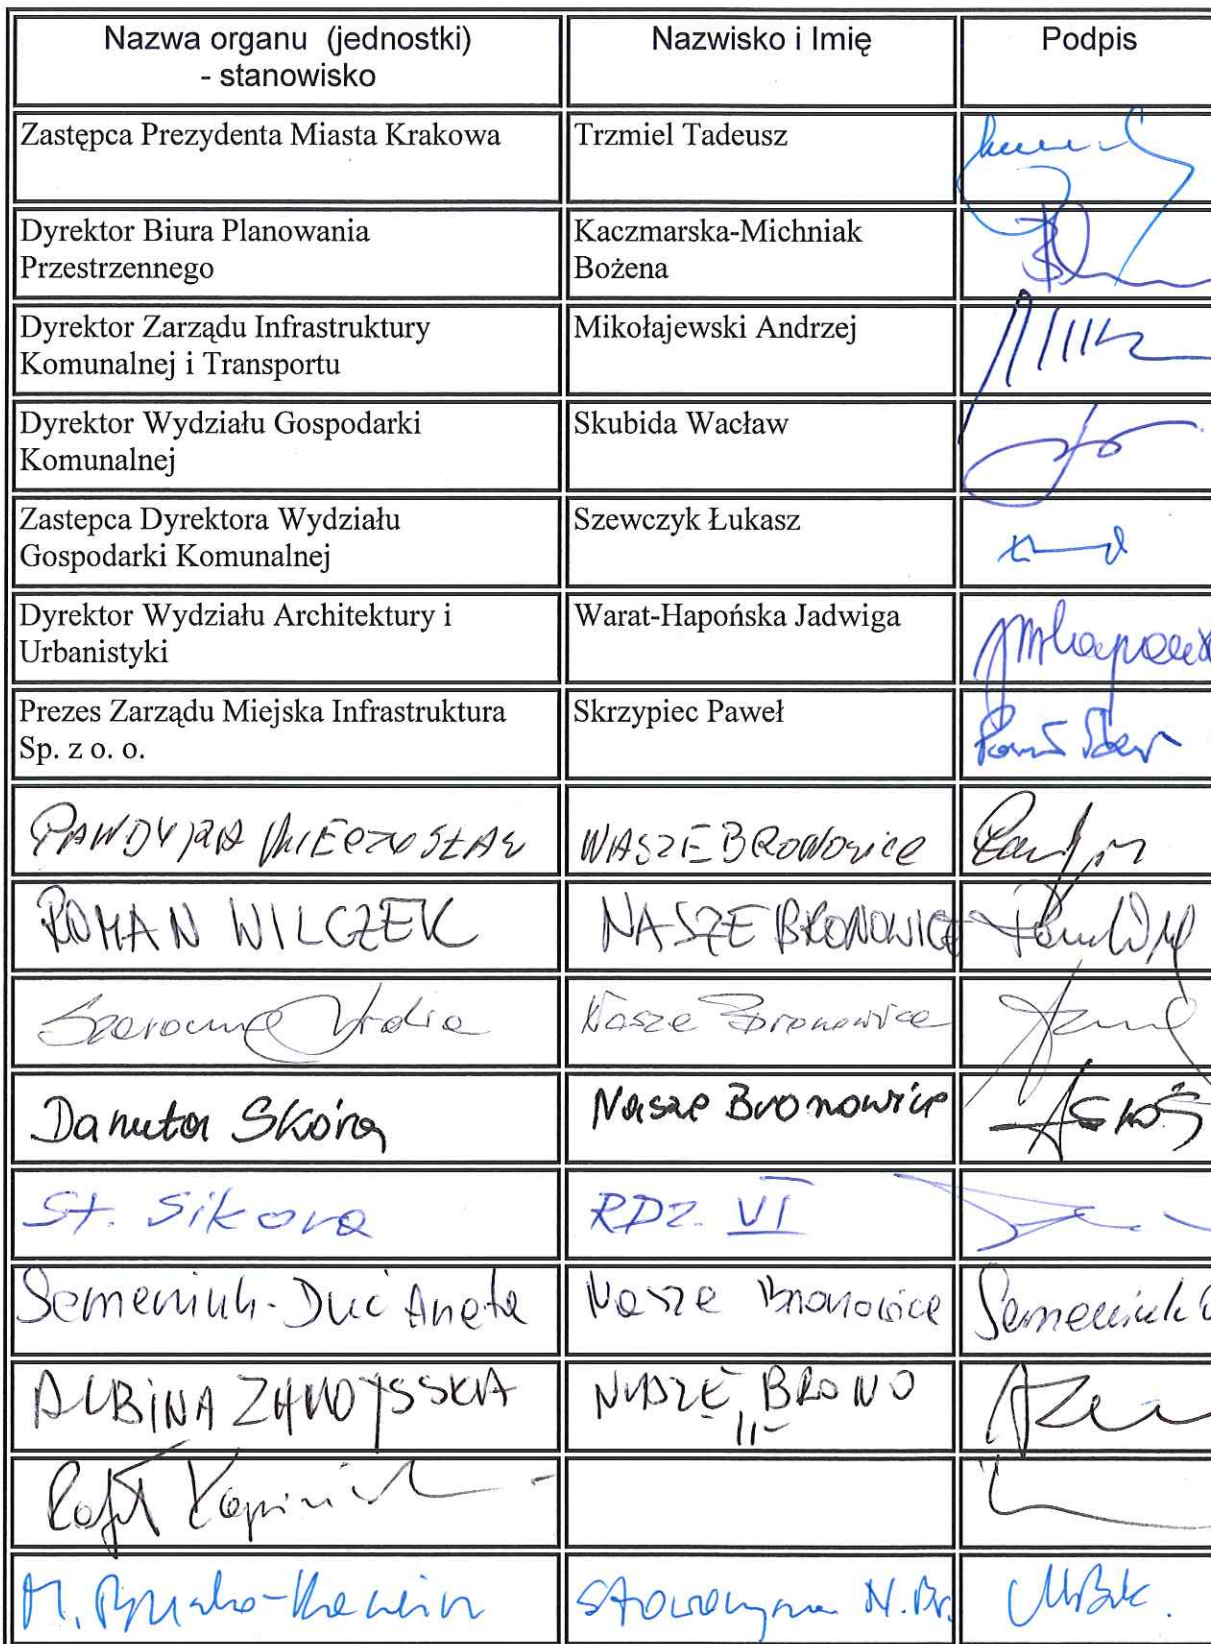 Nazwa organu (jednostki)
- stanowisko
Nazwisko i Imię
Podpis
Zastępca Prezydenta Miasta Krakowa
Trzmiel Tadeusz
Dyrektor Biura Planowania
Przestrzennego
Kaczmarska-Michniak
Bożena
Dyrektor Zarządu Infrastruktury
Komunalnej i Transportu
Mikołajewski Andrzej
Dyrektor Wydziału Gospodarki
Komunalnej
Skubida Wacław
Zastepca Dyrektora Wydziału
Gospodarki Komunalnej
Szewczyk Łukasz
Dyrektor Wydziału Architektury i
Urbanistyki
Warat-Hapońska Jadwiga
Prezes Zarządu Miejska Infrastruktura
Sp. z o. o.
Skrzypiec Paweł
ROMAN WILCZEK
NASZE BRONOWICE
Nasze Bronowice
Danuta Skóra
Nasze Bronowice
St. Sikora
RDZ. VI
Semeniuk-Duć Aneta
Nasze Bronowice
Semeniuk
ALBINA
NASZE BRONO
N. Br.